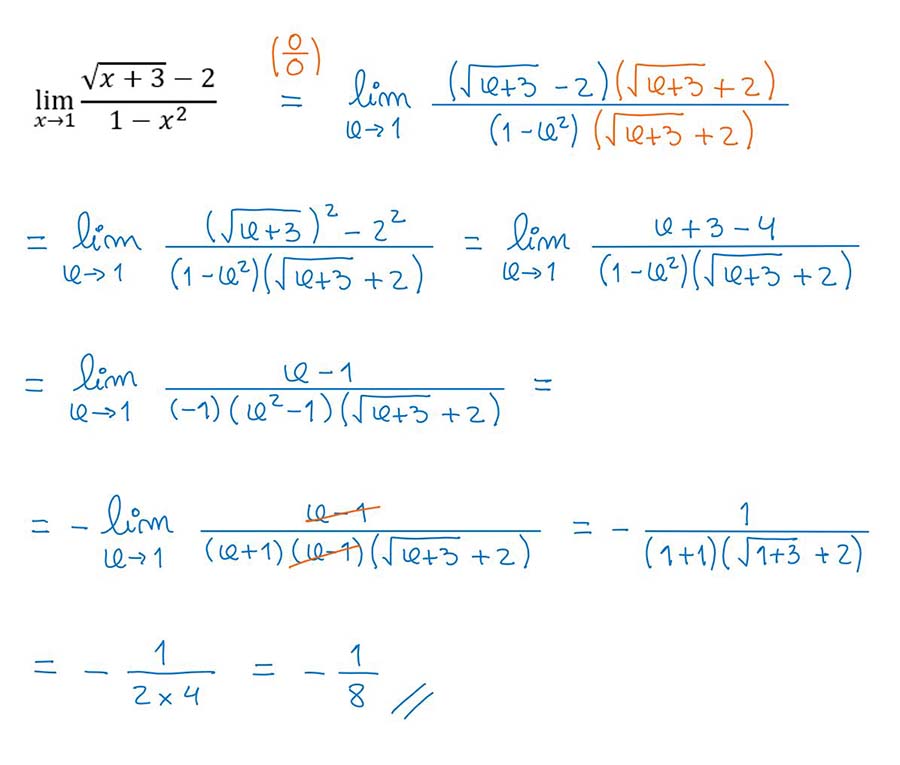 lim x→1 (√(x+3) − 2)/(1 − x²) (0/0) = lim x→1 ((√(x+3) − 2)(√(x+3) + 2))/((1−x²)(√(x+3) + 2))
= lim x→1 ((√(x+3))² − 2²)/((1−x²)(√(x+3) + 2)) = lim x→1 (x+3−4)/((1−x²)(√(x+3) + 2))
= lim x→1 (x−1)/((−1)(x²−1)(√(x+3) + 2)) =
= − lim x→1 (x−1)/((x+1)(x−1)(√(x+3) + 2)) = − 1/((1+1)(√(1+3) + 2))
= − 1/(2×4) = − 1/8 //